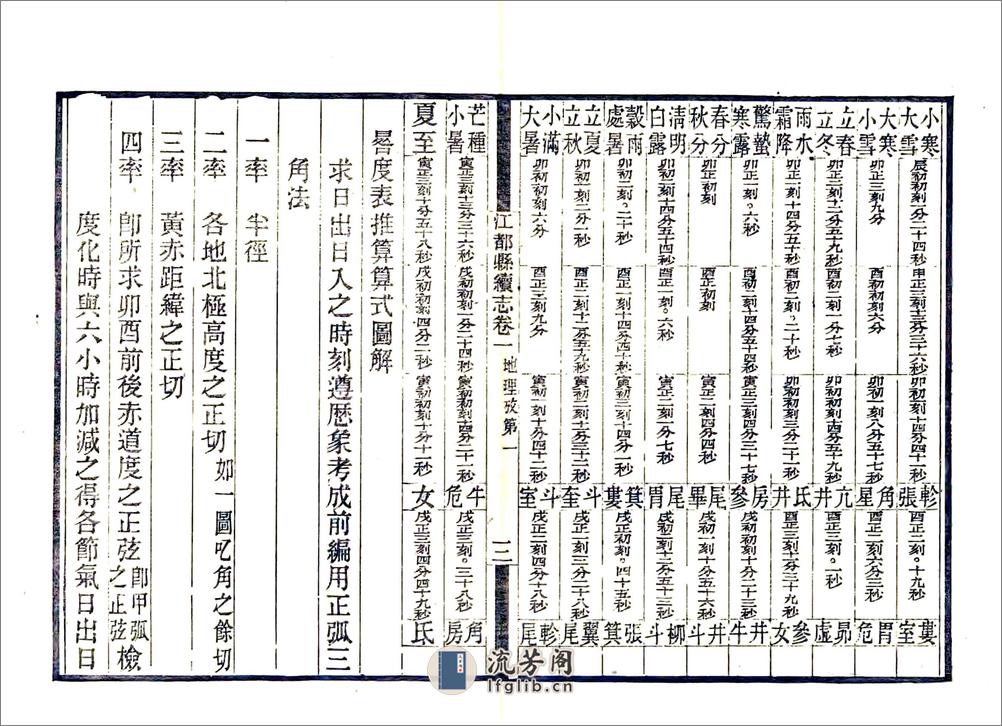 小寒 大雪 辰初初刻二分二十四秒 申正三刻十二分三十六秒 卯初初刻十三分四十一秒 軫 張 酉正二刻。十九秒 婁 室
大寒 小雪 卯正三刻九分 酉初初刻六分 卯初一刻八分五十七秒 角 星 酉正二刻六分三秒 胃 危
立春 立冬 卯正二刻十三分五十九秒 酉初一刻一分七秒 卯初初刻十四分五十九秒 亢 井 酉正三刻。一秒 昴 虛
雨水 霜降 卯正一刻十四分五十秒 酉初二刻。二十秒 卯初初刻二分二十一秒 氐 井 酉正三刻十二分三十九秒 參 女
驚蟄 寒露 卯正一刻。六秒 酉初二刻十四分五十四秒 寅正三刻四分五十七秒 房 參 戌初初刻十分三秒 井 牛
春分 秋分 卯正初刻 酉正初刻 寅正二刻四分四秒 尾 畢 戌初一刻十分五十六秒 井 斗
清明 白露 卯初二刻十四分五十四秒 酉正一刻。六秒 寅正一刻二分七秒 尾 胃 戌初二刻十二分五十三秒 柳 斗
穀雨 處暑 卯初二刻。二十秒 酉正一刻十四分四十秒 寅初三刻十四分十五秒 箕 婁 戌正初刻。四十五秒 張 箕
立夏 立秋 卯初一刻一分一秒 酉正二刻十三分五十九秒 寅初二刻十一分三十二秒 斗 奎 戌正一刻三分二十八秒 翼 尾
小滿 大暑 卯初初刻六分 酉正三刻九分 寅初一刻十分四十二秒 斗 室 戌正二刻四分十八秒 軫 尾
江都縣續志卷一 地理攷第一 三
芒種 小暑 寅正三刻十二分三十六秒 戌初初刻二分二十四秒 寅初初刻十四分二十一秒 牛 危 戌正三刻。三十八秒 角 房
夏至 寅正三刻十分五十八秒 戌初初刻四分二秒 寅初初刻十分十一秒 女 戌正三刻四分四十九秒 氐
晷度表推算算式圖解
求日出日入之時刻遵歷象考成前編用正弧三
角法
一率 半徑
二率 各地北極高度之正切 如一圖叺角之餘切
三率 黃赤距緯之正切
四率 卽所求卯酉前後赤道度之正弦 卽甲弧之正弦檢
度化時與六小時加減之得各節氣日出日
流芳阁
lfglib.cn